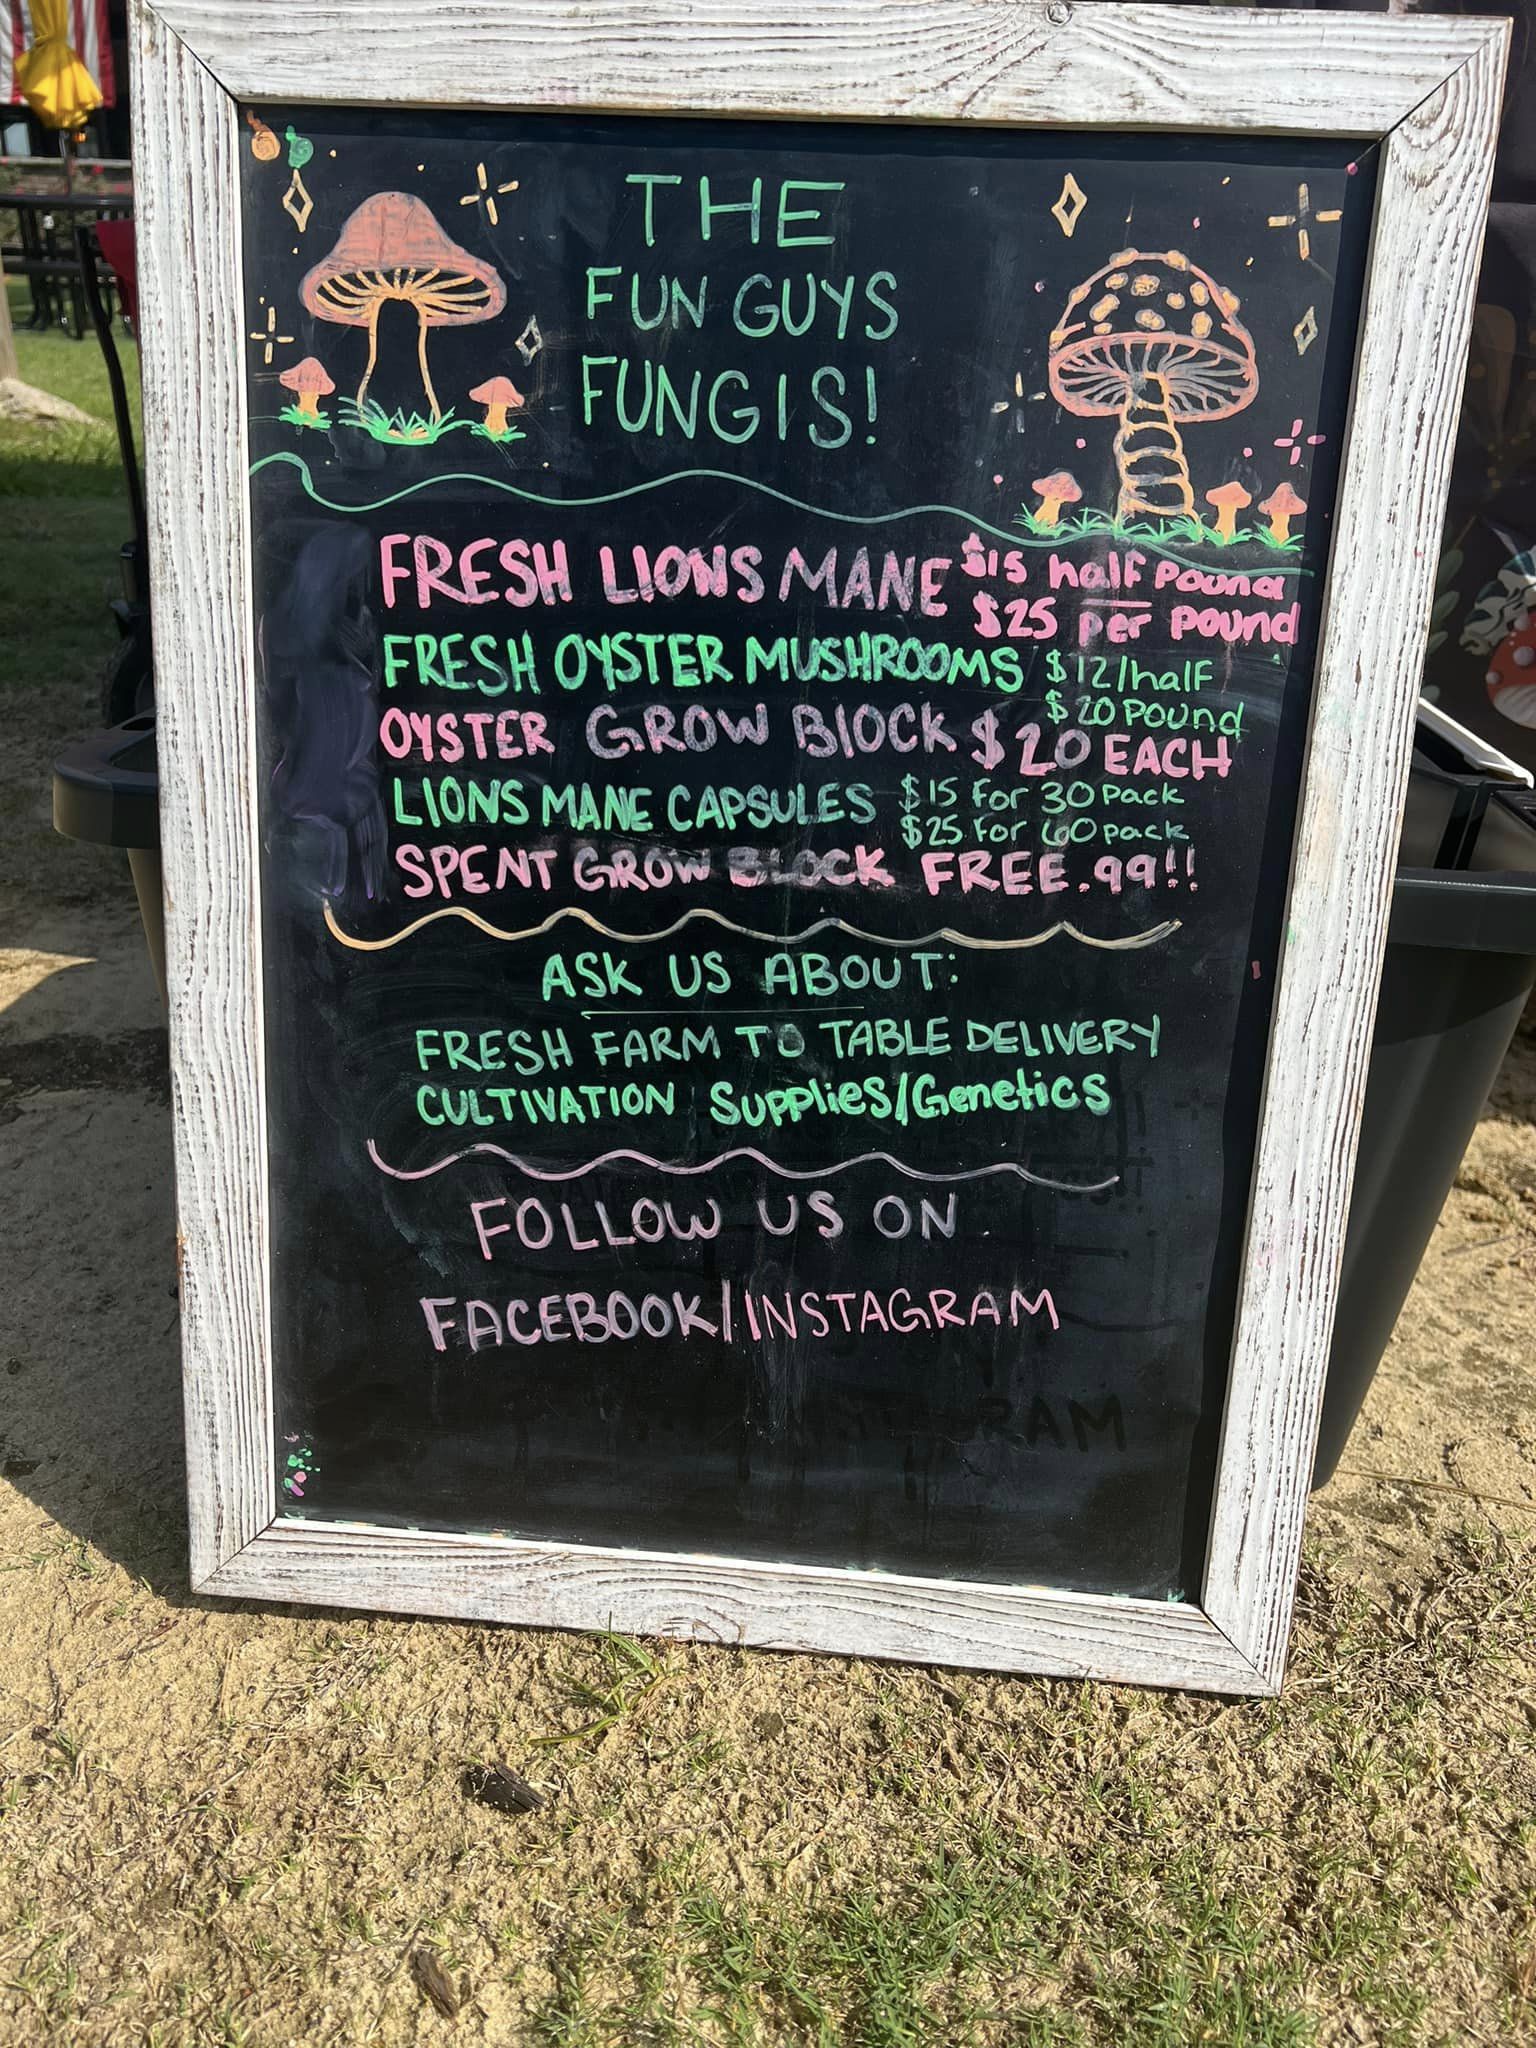 THE
FUN GUYS
FUNGIS!
FRESH LIONS MANE $15 half pound
$25 per pound
FRESH OYSTER MUSHROOMS $12/half
$20 pound
OYSTER GROW BLOCK $20 EACH
LIONS MANE CAPSULES $15 for 30 pack
$25 for 60 pack
SPENT GROW BLOCK FREE.99!!
ASK US ABOUT:
FRESH FARM TO TABLE DELIVERY
CULTIVATION Supplies/Genetics
FOLLOW US ON
FACEBOOK/INSTAGRAM